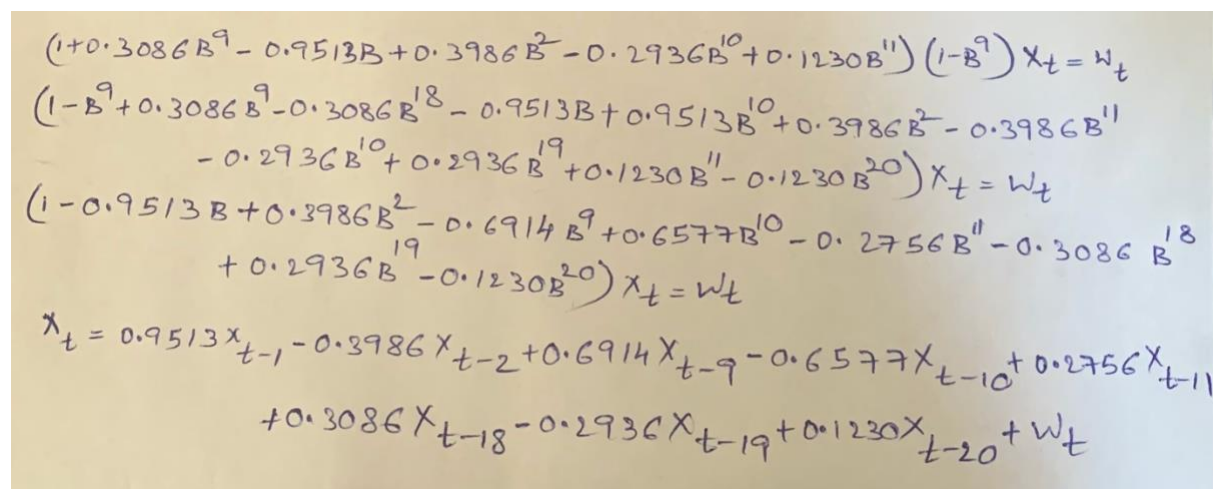 (1+0.3086B⁹ - 0.9513B + 0.3986B² - 0.2936B¹⁰ + 0.1230B¹¹) (1-B⁹) Xₜ = Wₜ
(1 - B⁹ + 0.3086B⁹ - 0.3086B¹⁸ - 0.9513B + 0.9513B¹⁰ + 0.3986B² - 0.3986B¹¹
- 0.2936B¹⁰ + 0.2936B¹⁹ + 0.1230B¹¹ - 0.1230B²⁰) Xₜ = Wₜ
(1 - 0.9513B + 0.3986B² - 0.6914B⁹ + 0.6577B¹⁰ - 0.2756B¹¹ - 0.3086B¹⁸
+ 0.2936B¹⁹ - 0.1230B²⁰) Xₜ = Wₜ
Xₜ = 0.9513Xₜ₋₁ - 0.3986Xₜ₋₂ + 0.6914Xₜ₋₉ - 0.6577Xₜ₋₁₀ + 0.2756Xₜ₋₁₁
+ 0.3086Xₜ₋₁₈ - 0.2936Xₜ₋₁₉ + 0.1230Xₜ₋₂₀ + Wₜ